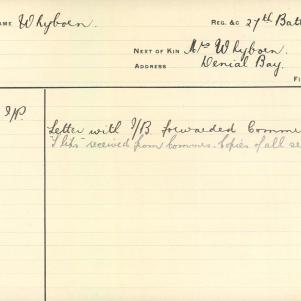 AME Whyborn. REG. &C 27th Batt
NEXT OF KIN Mrs Whyborn.
ADDRESS Denial Bay.
FI
I/P. Letter with I/B. forwarded Comme
received from Commrs. Copies of all se